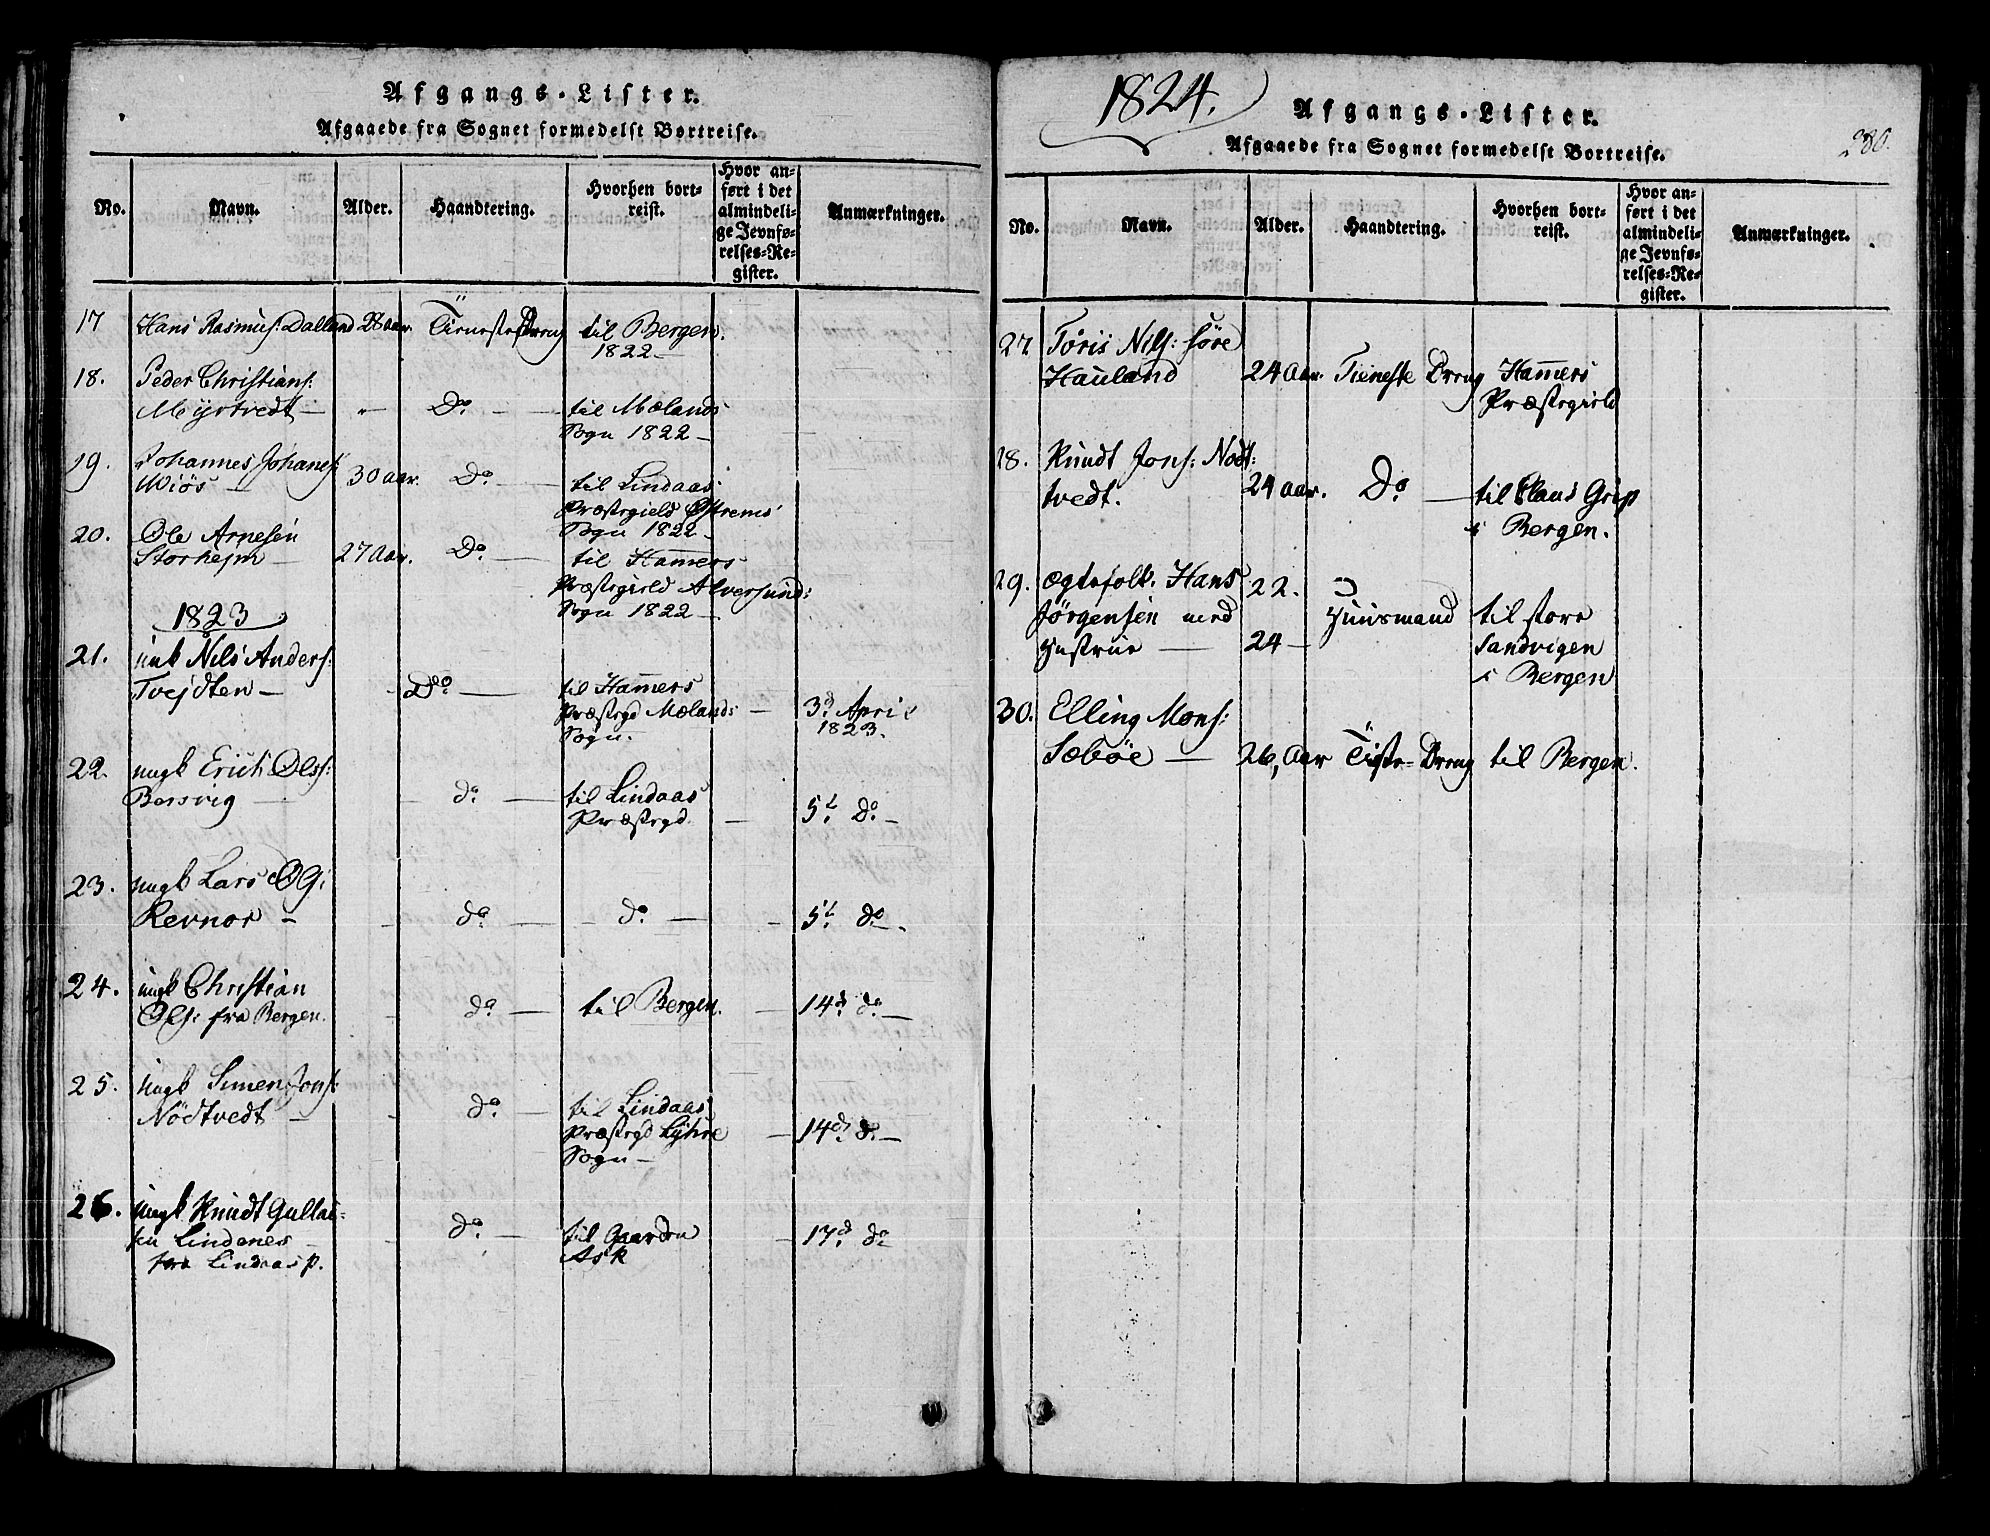 Afgangs-Lister.
Afgaaede fra Sognet formedelst Bortreise.
No. Navn. Alder. Haandtering. Hvorhen bort-reist. Hvor an-ført i det almindeli-ge Jevnfø-relses-Re-gister. Anmærkninger.
17 Hans Rasmus: Dalland 28 aar. Tieneste Dreng til Bergen.
1822 —
18. Peder Christians:
Myrtvedt — " Do. — til Mælands
Sogn 1822 —
19. Johannes Johanes:
Miös — 30 aar. Do. — til Lindaas
Præstegield Østrems
Sogn 1822 —
20. Ole Arnesen
Storhejm — 27 Aar. Do. — til Hamers
Præstegield Alversund:
Sogn 1822 —
1823
21. unk Nils Anders:
Tvejdten — Do — til Hamers
Præstegd Mælands — 3d April
Sogn. 1823.
22. ungk Erich Olss:
Bersvig — do — til Lindaas
Præstegd. — 5t Do —
23. ungk Lars O G:
Revnor — do — do. — 5t do —.
24. ungk Christian
Ols: fra Bergen. do — til Bergen. — 14d do. —
25. Ungk Simen Jons:
Nödtvedt — do — til Lindaas
Præstegd Lyhre — 14d do —
Sogn —
26. ungk Knudt Gullak-
sen Lindenes — do. — til Gaarden — 17d do
fra Lindaas p. Ask
1824.
Afgangs-Lister.
Afgaaede fra Sognet formedelst Bortreise.
280.
No. Navn. Alder. Haandtering. Hvorhen bort-reist. Hvor an-ført i det almindeli-ge Jevnfø-relses-Re-gister. Anmærkninger.
27. Töris Nils: søre
Hauland 24 Aar. Tieneste Dreng Hamers
Præstegield
28. Knudt Jons: Nödt:
tvedt. 24 aar. Do — til Claus Grip
i Bergen.
29. Ægtefolk. Hans 22.
Jörgensen med Huusmand til store
Hustrue — 24 — Sandvigen
i Bergen
30. Elling Mons:
Sæböe — 26, Aar Tieste-Dreng til Bergen.